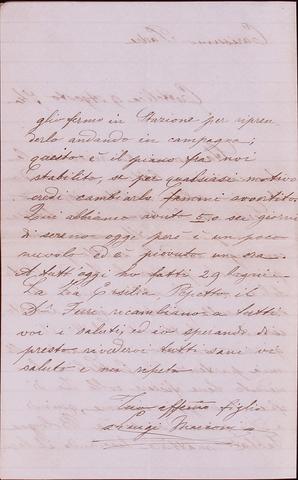 glio fermo in Stazione per ripren
derlo andando in campagna;
questo è il piano fra noi
stabilito, se per qualsiasi motivo
credi cambiarlo fammi avvertito.
Qui abbiamo avuto 5, o sei giorni
di sereno oggi però è un poco
nuvolo ed è piovuto un ora.
A tutt'oggi ho fatti 29 bagni.
La Zia Ersilia, Pepetto, il
Dr ricambiano a tutti
voi i saluti, ed io sperando di
presto rivedervi tutti sani vi
saluto e mi ripeto
Tuo affemo figlio
Luigi